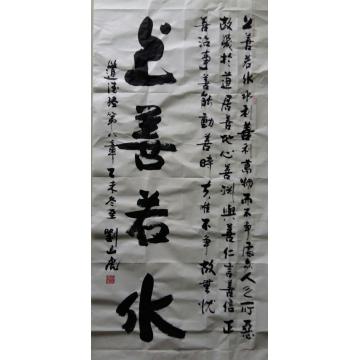 上善若水水利善利萬物而不争處衆人之所惡
故幾於道居善地心善渊與善仁言善信正
善治事善能動善時夫唯不争故無忧
上善若水
道德经第八章乙未冬至劉山